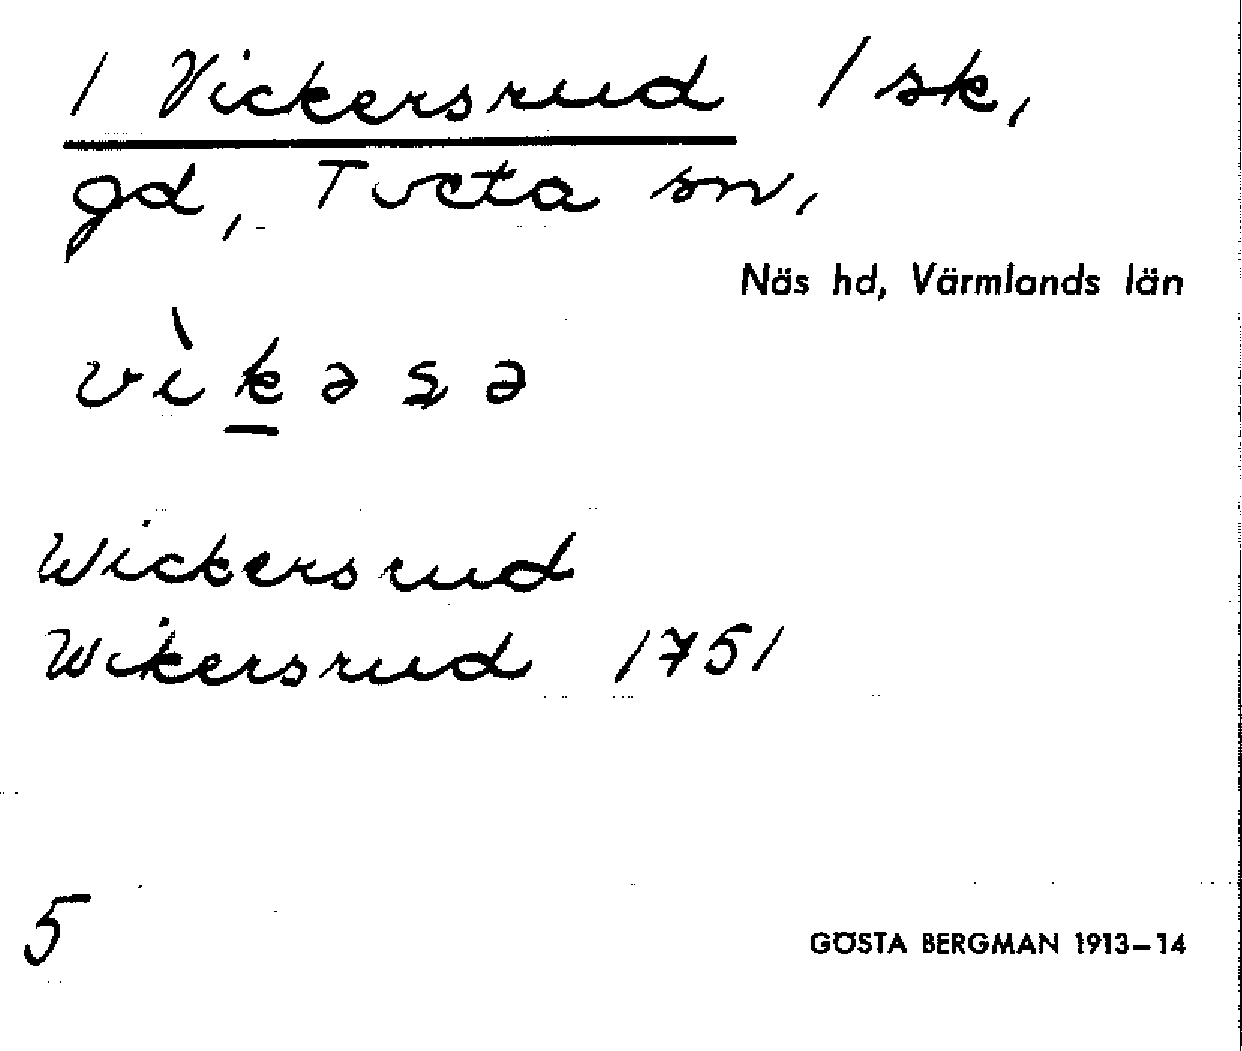 / Vickersrud / sk,
gd, Tveta sn,
Näs hd, Värmlands län
vìk̲əʂə
Wickersrud
Wikersrud 1751
5
GÖSTA BERGMAN 1913–14